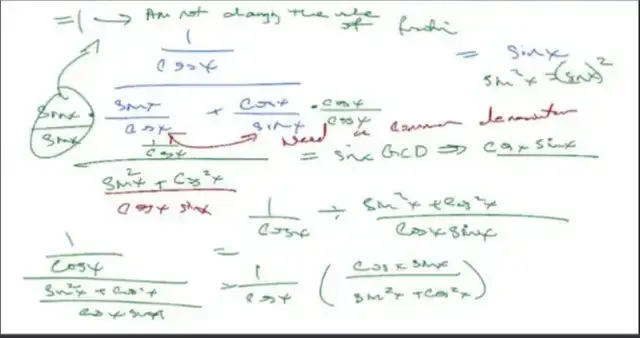 = 1 → Am not changing the value of fraction
1/cosx
= sinx
sin²x = (sinx)²
sinx/sinx · sinx/cosx + cosx/sinx · cosx/cosx
Need a common denominator
1/cosx = sinx GCD ⇒ cosx sinx
sin²x + cos²x / cosx sinx
1/cosx ÷ sin²x + cos²x / cosx sinx
1/cosx / sin²x + cos²x / cosx sinx = 1/cosx ( cosx sinx / sin²x + cos²x )